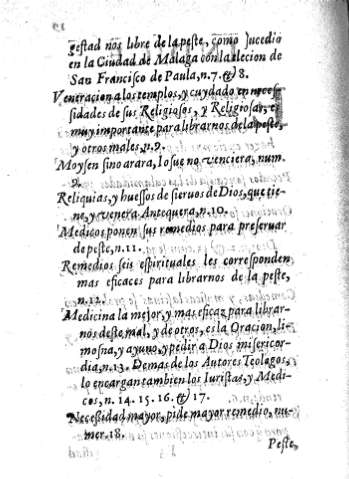 gestad nos libre de la peste, como sucedio
en la Ciudad de Malaga con la elecion de
San Francisco de Paula, n.7. & 8.
Veneracion a los templos, y cuydado en neces-
sidades de sus Religiosos, y Religiosas, es
muy importante para librarnos de la peste,
y otros males, n.9.
Moysen sino arara, Iosue no venciera, num.
9.
Reliquias, y huessos de siervos de Dios, que tie-
ne, y venera Antequera, n.10.
Medicos ponen sus remedios para preservar
de peste, n.11.
Remedios seis espirituales les corresponden
mas eficaces para librarnos de la peste,
n.12.
Medicina la mejor, y mas eficaz para librar-
nos deste mal, y de otros, es la Oracion, li-
mosna, y ayuno, y pedir a Dios misericor-
dia, n.13. Demas de los Autores Teologos,
lo encargan tambien los Iuristas, y Medi-
cos, n. 14. 15. 16. & 17.
Necessidad mayor, pide mayor remedio, nu-
mer. 18.
Peste,